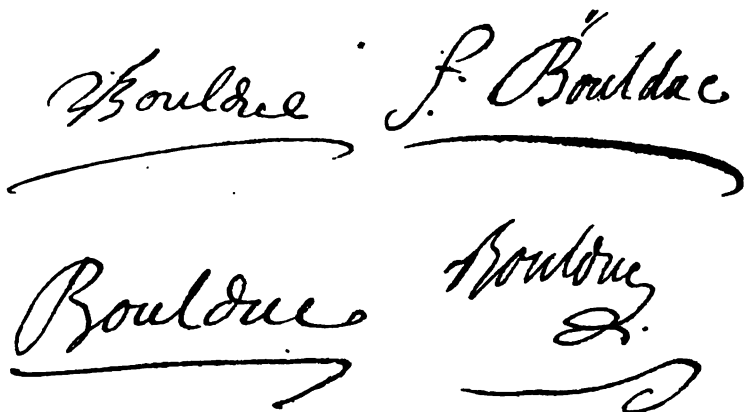 Boulduc
f. Boulduc
Boulduc
Boulduc